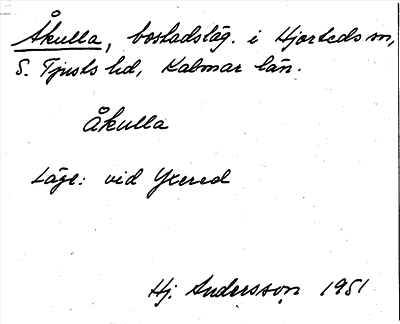 Åkulla, bostadsläg. i Hjorteds sn,
S. Tjusts hd, Kalmar län.
Åkulla
Läge: vid Yxered
Hj. Andersson 1951